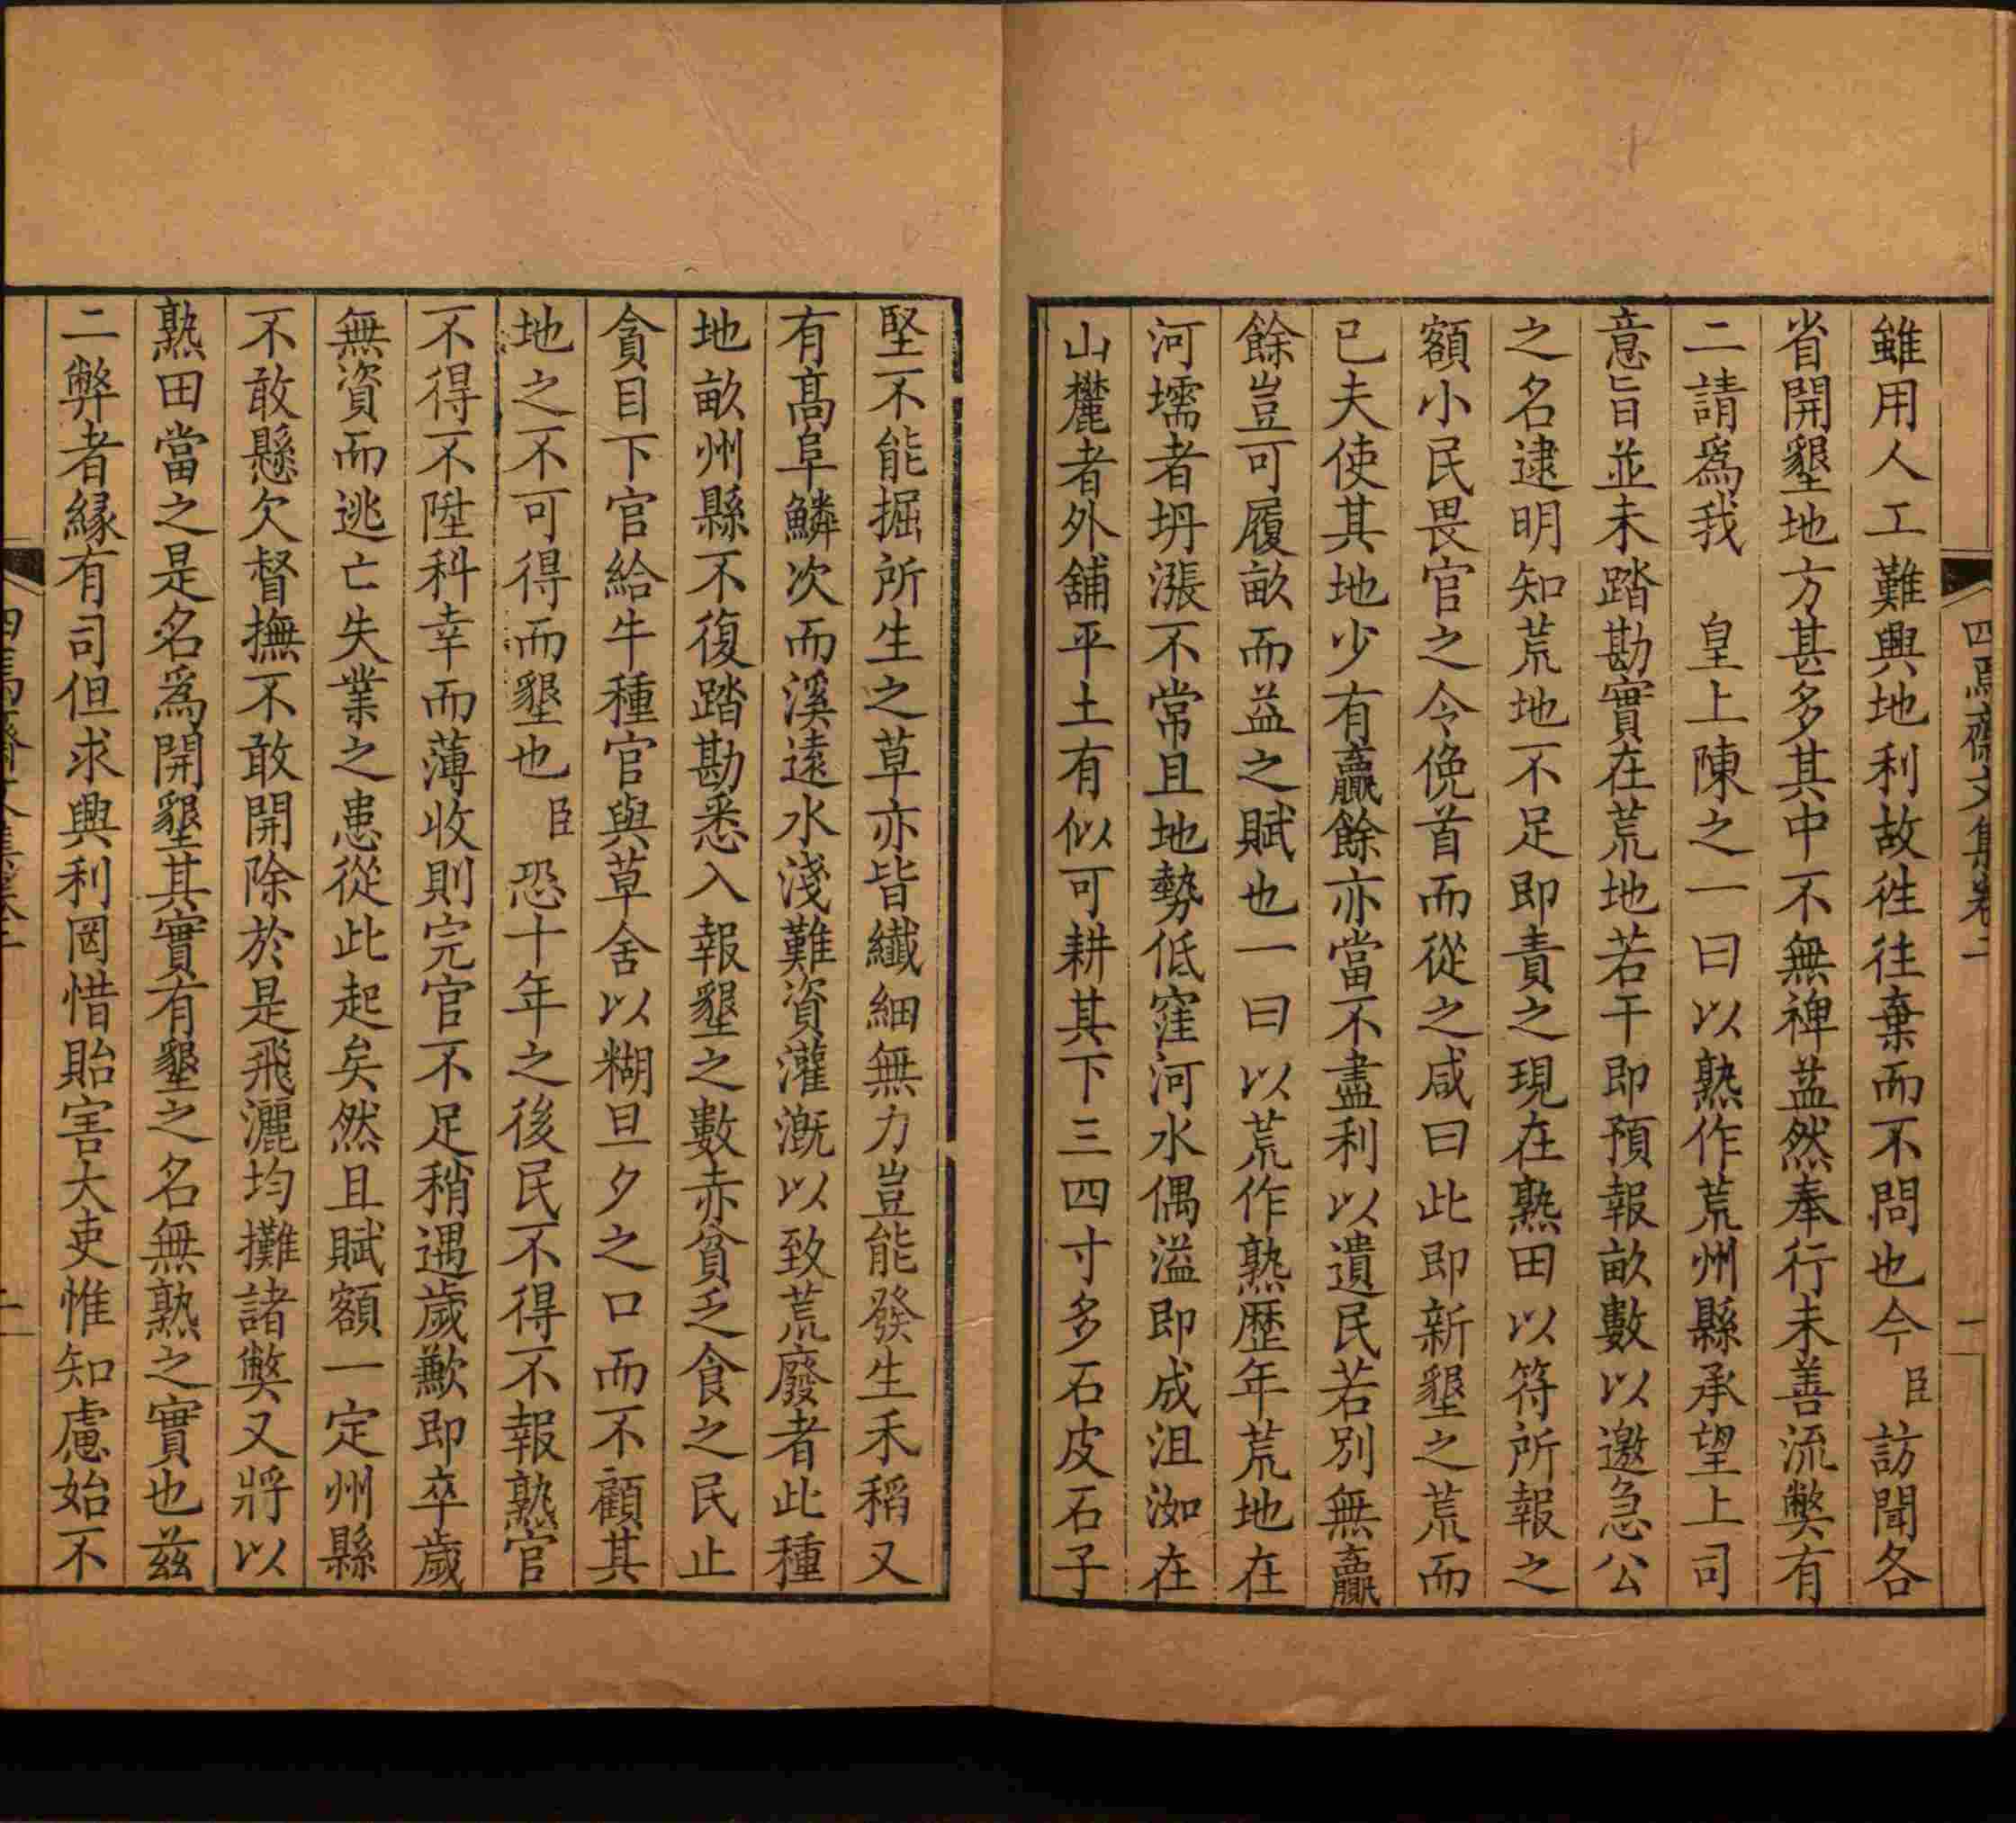 四焉齋文集卷二
一
雖用人工難興地利故徃往棄而不問也今臣訪聞各
省開墾地方甚多其中不無裨益然奉行未善流弊有
二請爲我　皇上陳之一曰以熟作荒州縣承望上司
意旨並未踏勘實在荒地若干即預報畝數以邀急公
之名逮明知荒地不足即責之現在熟田以符所報之
額小民畏官之令俛首而從之咸曰此即新墾之荒而
已夫使其地少有贏餘亦當不盡利以遺民若別無贏
餘豈可履畝而益之賦也一曰以荒作熟歷年荒地在
河壖者坍漲不常且地勢低窪河水偶溢即成沮洳在
山麓者外舖平土有似可耕其下三四寸多石皮石子
堅不能掘所生之草亦皆纖細無力豈能發生禾稻又
有高阜鱗次而溪遠水淺難資灌漑以致荒廢者此種
地畝州縣不復踏勘悉入報墾之數赤貧乏食之民止
貪目下官給牛種官與草舍以糊旦夕之口而不顧其
地之不可得而墾也臣恐十年之後民不得不報熟官
不得不陞科幸而薄收則完官不足稍遇歲歉即卒歲
無資而逃亡失業之患從此起矣然且賦額一定州縣
不敢懸欠督撫不敢開除於是飛灑均攤諸弊又將以
熟田當之是名爲開墾其實有墾之名無熟之實也兹
二弊者緣有司但求興利罔惜貽害大吏惟知慮始不